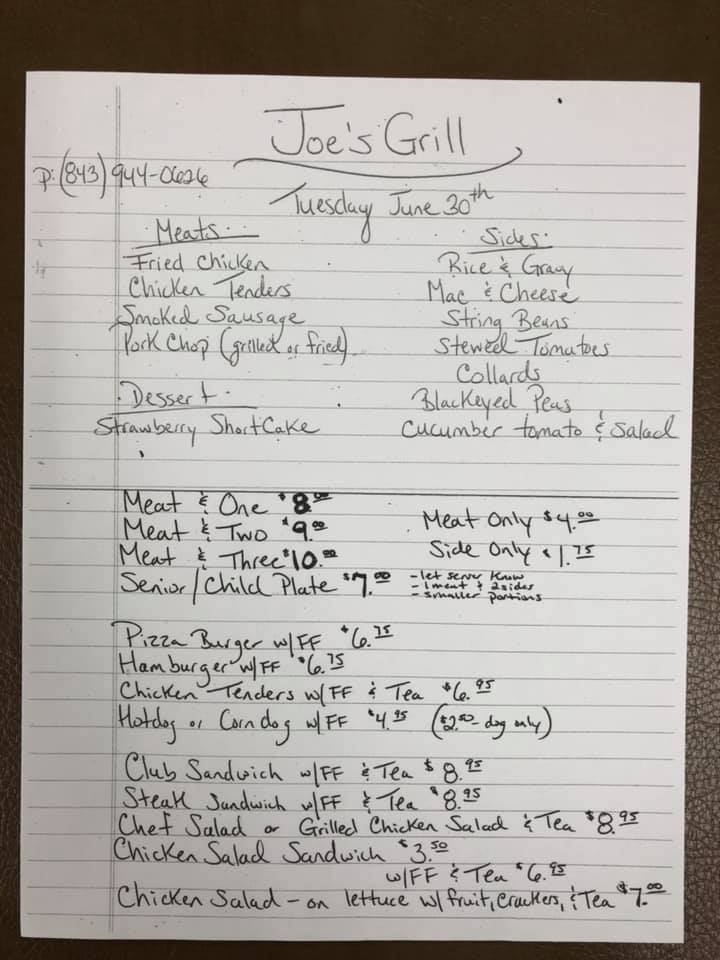 Joe's Grill
p: (843) 944-0626
Tuesday June 30th
Meats
Fried Chicken
Chicken Tenders
Smoked Sausage
Pork Chop (grilled or fried)
Dessert
Strawberry ShortCake
Sides
Rice & Gravy
Mac & Cheese
String Beans
Stewed Tomatoes
Collards
Blackeyed Peas
Cucumber tomato & Salad
Meat & One $8.00
Meat & Two $9.00
Meat & Three $10.00
Senior/Child Plate $7.00
Meat Only $4.00
Side Only $1.75
- let server know
- 1 meat & 2 sides
- smaller portions
Pizza Burger w/FF $6.75
Hamburger w/FF $6.75
Chicken Tenders w/FF & Tea $6.95
Hotdog or Corndog w/FF $4.95 ($2.50 - dog only)
Club Sandwich w/FF & Tea $8.95
Steak Sandwich w/FF & Tea $8.95
Chef Salad or Grilled Chicken Salad & Tea $8.95
Chicken Salad Sandwich $3.50
w/FF & Tea $6.95
Chicken Salad - on lettuce w/fruit, crackers, & Tea $7.00